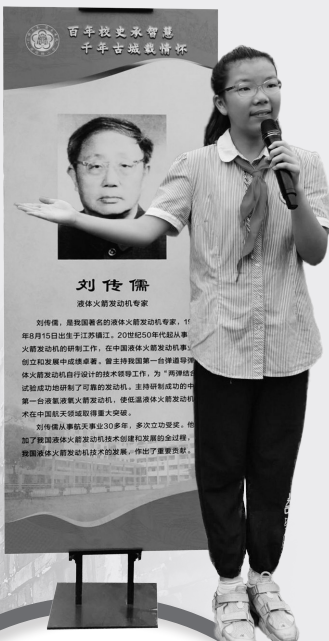 百年校史承智慧
千年古城载情怀
刘传儒
液体火箭发动机专家
刘传儒，是我国著名的液体火箭发动机专家，19
年8月15日出生于江苏镇江。20世纪50年代起从事
火箭发动机的研制工作，在中国液体火箭发动机事业
创立和发展中成绩卓著。曾主持我国第一台弹道导弹
体火箭发动机自行设计的技术领导工作，为“两弹结合
试验成功地研制了可靠的发动机。主持研制成功的中
第一台液氢液氧火箭发动机，使低温液体火箭发动机
术在中国航天领域取得重大突破。
刘传儒从事航天事业30多年，多次立功受奖。他
加了我国液体火箭发动机技术创建和发展的全过程，
我国液体火箭发动机技术的发展，作出了重要贡献。